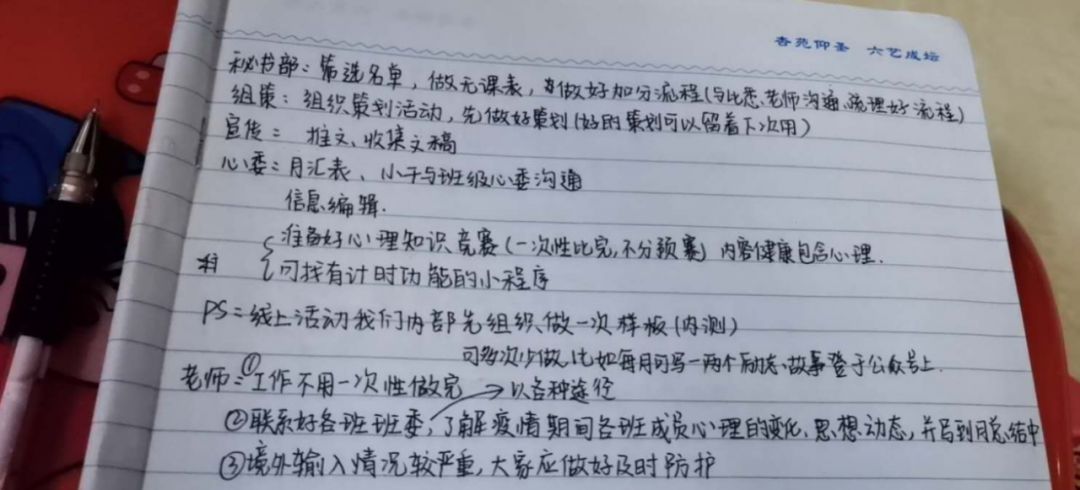 杏苑仰圣 六艺成坛
秘书部：筛选名单，做无课表，做好加分流程(与比悉老师沟通、疏理好流程)
组策：组织策划活动，先做好策划(好的策划可以留着下次用)
宣传：推文、收集文稿
心委：月汇表、小干与班级心委沟通
信息编辑.
准备好心理知识竞赛(一次性比完,不分预赛) 内容健康包含心理.
可找有计时功能的小程序
PS：线上活动我们内部先组织、做一次样板(内测)
可多次少做,比如每月可写一两个励志、故事登于公众号上.
老师：①工作不用一次性做完 →以各种途径
②联系好各班班委，了解疫情期间各班成员心理的变化、思想动态,并写到月总结中
③境外输入情况较严重,大家应做好及时防护